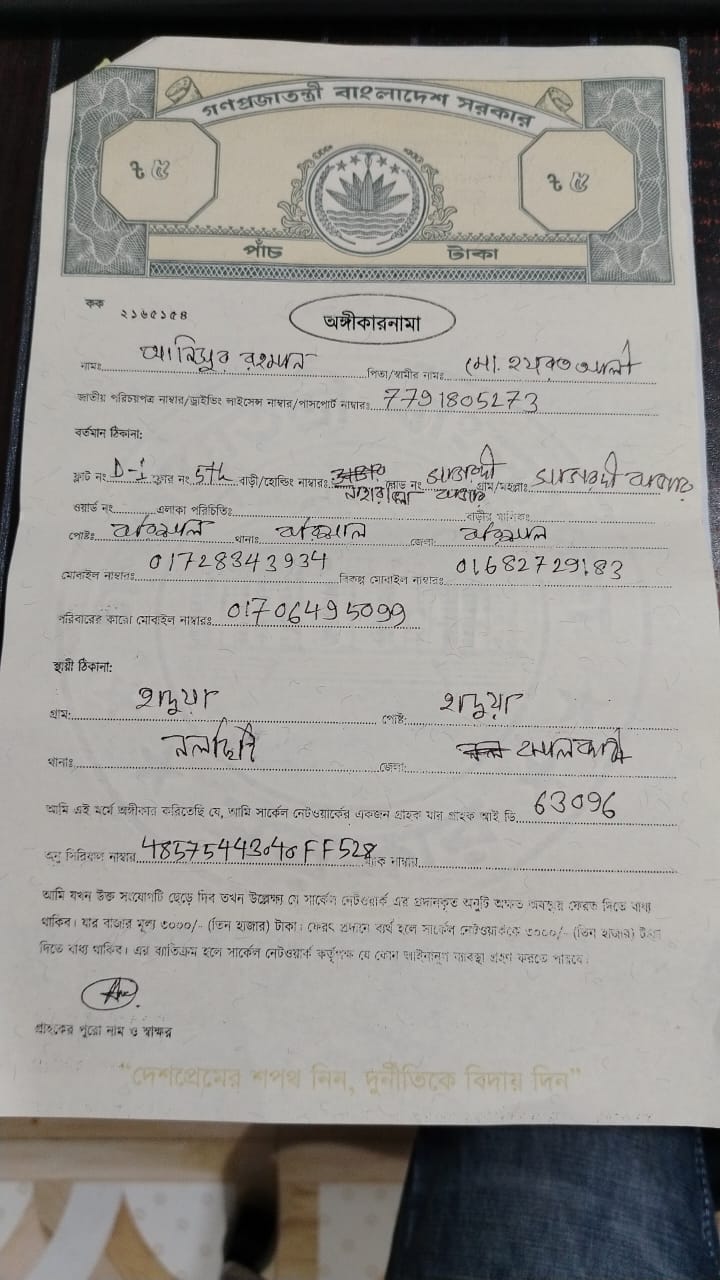 গণপ্রজাতন্ত্রী বাংলাদেশ সরকার
৳ ৫ ৳ ৫
পাঁচ টাকা
কক ২১৬৫১৫৪
অঙ্গীকারনামা
নামঃ আনিসুর রহমান পিতা/স্বামীর নামঃ মো. হযরত আলী
জাতীয় পরিচয়পত্র নাম্বার/ড্রাইভিং লাইসেন্স নাম্বার/পাসপোর্ট নাম্বারঃ 7791805273
বর্তমান ঠিকানা:
ফ্লাট নং D-1 ফ্লোর নং 5th বাড়ী/হোল্ডিং নাম্বারঃ রোড নং গ্রাম/মহল্লাঃ
ওয়ার্ড নং এলাকা পরিচিতিঃ বাড়ীর মালিকঃ
পোষ্টঃ বরিশাল থানাঃ বরিশাল জেলা: বরিশাল
মোবাইল নাম্বারঃ 01728343934 বিকল্প মোবাইল নাম্বারঃ 01682729183
পরিবারের কারো মোবাইল নাম্বারঃ 01706495099
স্থায়ী ঠিকানা:
গ্রাম: হাদুয়া পোষ্ট: হাদুয়া
থানাঃ নলছিটি জেলা: ঝালকাঠী
আমি এই মর্মে অঙ্গীকার করিতেছি যে, আমি সার্কেল নেটওয়ার্কের একজন গ্রাহক যার গ্রাহক আই ডি 63096
অনু সিরিয়াল নাম্বার 485754443040FF528 ম্যাক নাম্বার
আমি যখন উক্ত সংযোগটি ছেড়ে দিব তখন উল্লেক্ষ্য যে সার্কেল নেটওয়ার্ক এর প্রদানকৃত অনুটি অক্ষত অবস্থায় ফেরত দিতে বাধ্য
থাকিব। যার বাজার মূল্য ৩০০০/- (তিন হাজার) টাকা। ফেরৎ প্রদানে ব্যর্থ হলে সার্কেল নেটওয়ার্ককে ৩০০০/- (তিন হাজার) টাকা
দিতে বাধ্য থাকিব। এর ব্যতিক্রম হলে সার্কেল নেটওয়ার্ক কর্তৃপক্ষ যে কোন আইনানুগ ব্যবস্থা গ্রহণ করতে পারবে।
গ্রাহকের পুরো নাম ও স্বাক্ষর
"দেশপ্রেমের শপথ নিন, দুর্নীতিকে বিদায় দিন"